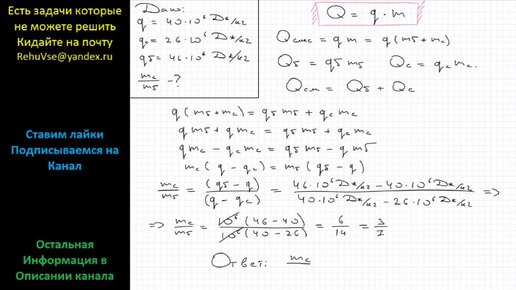 Есть задачи которые
не можете решить
Кидайте на почту
RehuVse@yandex.ru
Ставим лайки
Подписываемся на
Канал
Остальная
Информация в
Описании канала
Дано:
q = 40·10⁶ Дж/кг
qс = 26·10⁶ Дж/кг
qб = 46·10⁶ Дж/кг
mс/mб - ?
Q = q · m
Qсмс = q m = q (mб + mс)
Qб = qб mб Qс = qс mс.
Qсм = Qб + Qс
q (mб + mс) = qб mб + qс mс
q mб + q mс = qб mб + qс mс
q mс - qс mс = qб mб - q mб
mс (q - qс) = mб (qб - q)
mс/mб = (qб - q)/(q - qс) = (46·10⁶ Дж/кг - 40·10⁶ Дж/кг)/(40·10⁶ Дж/кг - 26·10⁶ Дж/кг) =>
=> mс/mб = 10⁶ (46 - 40)/10⁶ (40 - 26) = 6/14 = 3/7
Ответ: mс